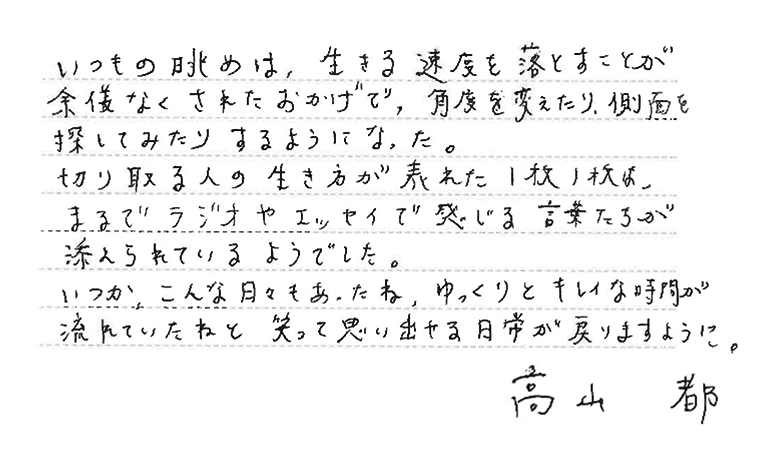 いつもの眺めは、生きる速度を落とすことが
余儀なくされたおかげで、角度を変えたり、側面を
探してみたりするようになった。
切り取る人の生き方が表れた1枚1枚は、
まるでラジオやエッセイで感じる言葉たちが
添えられているようでした。
いつか、こんな日々もあったね、ゆっくりとキレイな時間が
流れていたねと笑って思い出せる日常が戻りますように。
高山 都